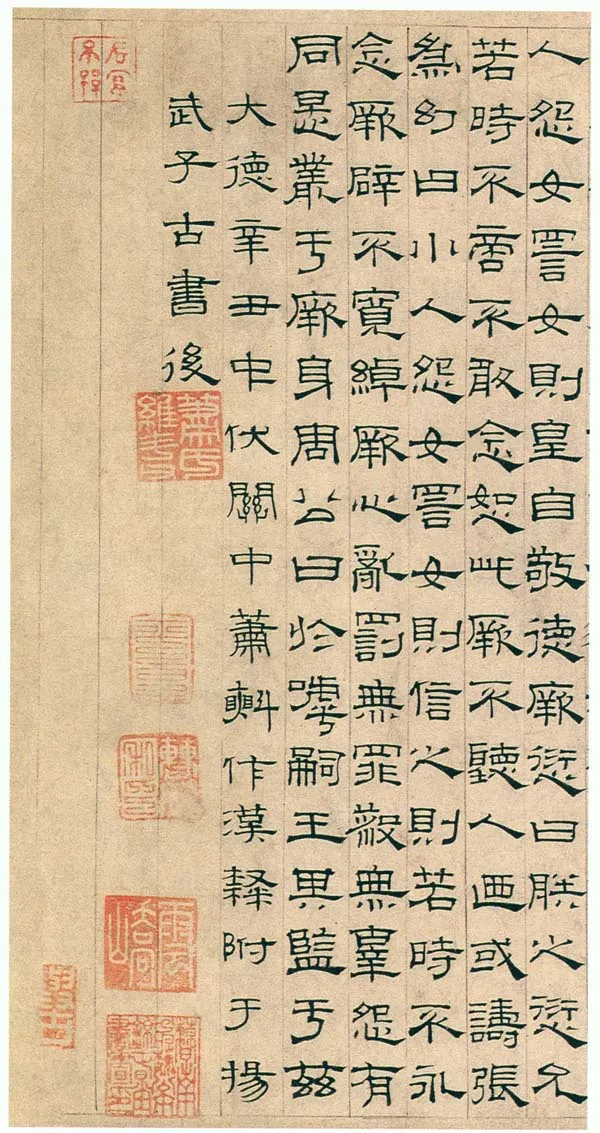 人怨女詈女則皇自敬德厥愆曰朕之愆允
若時不啻不敢含怒此厥不聽人迺或譸張
為幻曰小人怨女詈女則信之則若時不永
念厥辟不寬綽厥心亂罰無罪殺無辜怨有
同是叢于厥身周公曰於嘑嗣王其監于茲
大德辛丑中伏關中蕭㪺作漢隸附于揚
武子古書後
蕭氏維斗